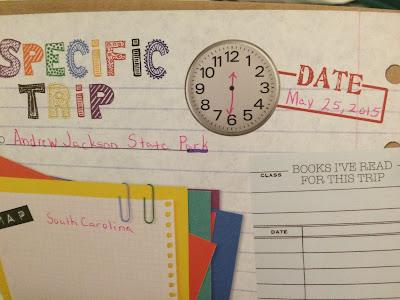 SPECiFiC
TRiP
12
11 1
10 2
9 3
8 4
7 5
6
DATE
May 25, 2015
Andrew Jackson State Park
MAP
South Carolina
CLASS
BOOKS I'VE READ
FOR THIS TRIP
DATE